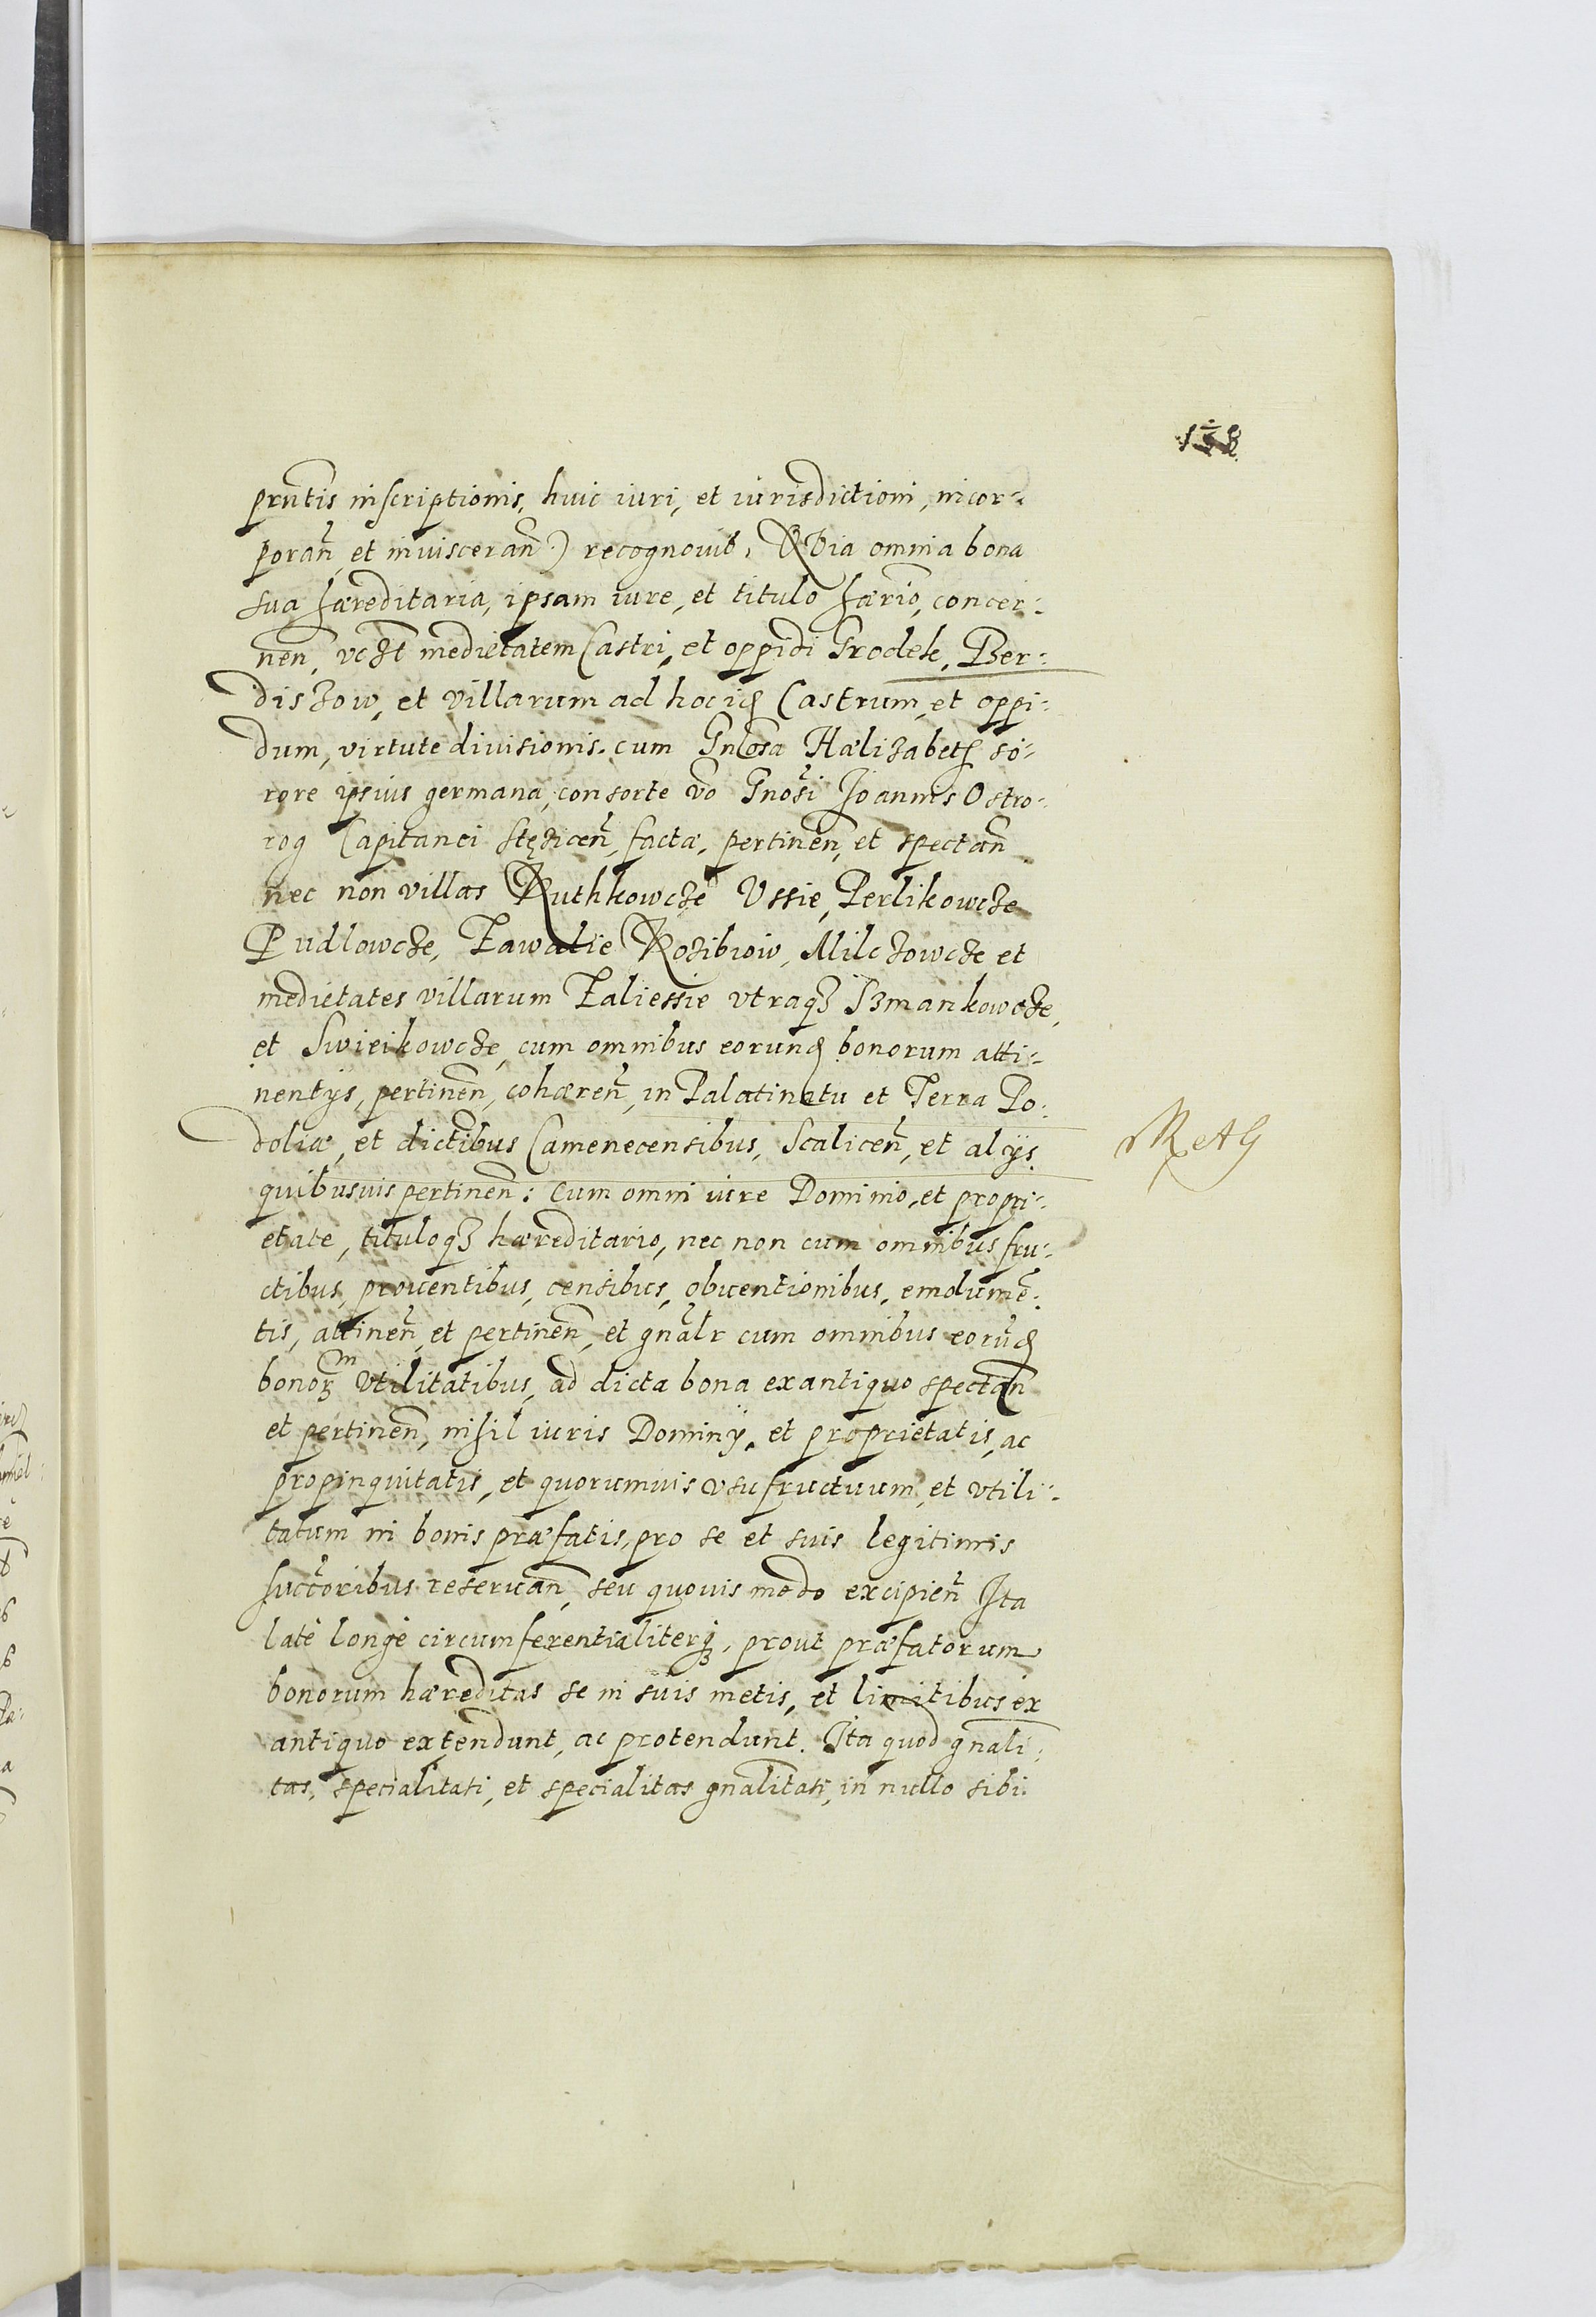 prntis inscriptionis, huic iuri, et iurisdictioni, incor=
poran̄ et inuisceran̄.) recognouit, Quia omnia bona
sua hæreditaria, ipsam iure, et titulo hærio, concer=
nen̄, vczt medietatem Castri, et oppidi Grodek, Ber=
diszow, et villarum ad hocidē Castrum, et oppi=
dum, virtute diuisionis cum Gn̄osa Hælizabeth so=
rore ipsius germana, consorte vo Gnosi Joannis Ostro=
rog Capitanei Stęzicen̄, factæ, pertinen̄, et spectan̄
nec non villas Ruthkowcze Ussie, Perlikowcze
Pudlowcze, Zawalie Kozibrow, Milczowcze et
medietates villarum Zaliessie vtraqz Szmankowcze,
et Swirikowcze, cum omnibus eorundē bonorum atti=
nentijs, pertinen̄, cohæren̄, in Palatinatu et Terra Po=
doliæ, et dictibus Camenecensibus, Scalicen̄, et alijs
quibusuis pertinen̄: Cum omni iure Dominio, et propri=
etate, tituloqz hæreditario, nec non cum omnibus fru=
ctibus, prouentibus, censibus, obuentionibus, emolumē=
tis, attinen̄, et pertinen̄, et gnalr cum omnibus eorūdē
bonorm vtilitatibus, ad dicta bona exantiquo spectan̄
et pertinen̄, nihil iuris Dominij, et proprietatis, ac
propinquitatis, et quorumuis vsufructuum, et vtili=
tatum in bonis præfatis, pro se et suis legitimis
succoribus reseruan̄, seu quouis modo excipien̄ Ita
latè longè circumferentialiterqz, prout præfatorum
bonorum hæreditas se in suis metis, et limitibus ex
antiquo extendunt, ac protendunt. Ita quod gnali=
tas, specialitati, et specialitas gnalitati, in nullo sibi